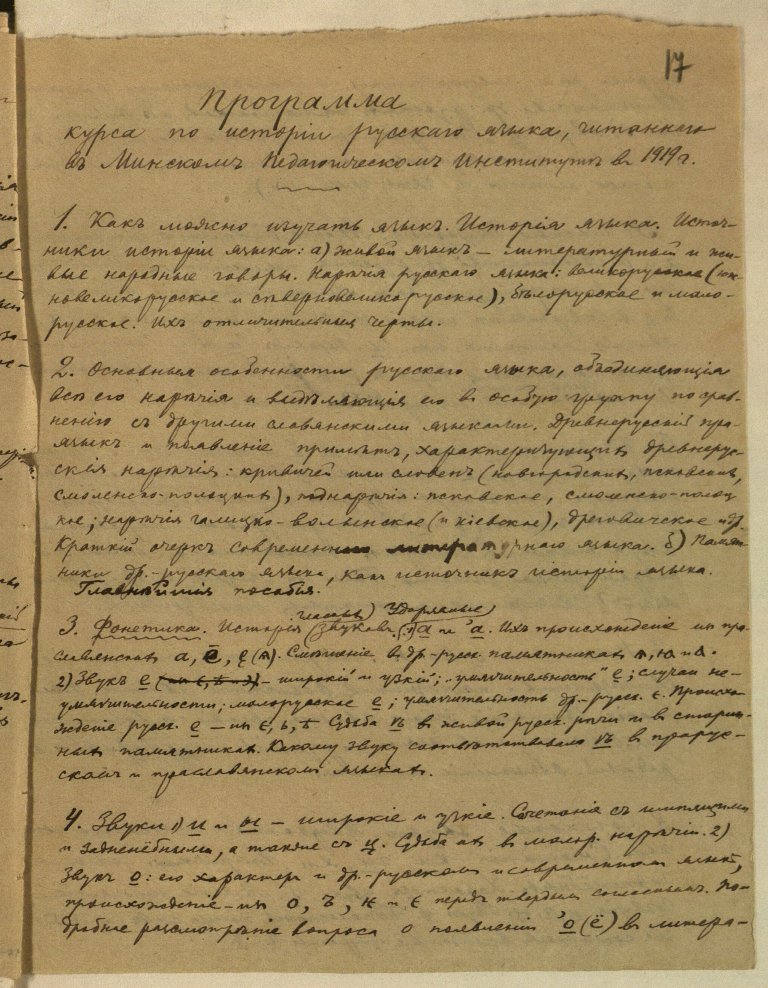 17
Программа
курса по исторіи русскаго языка, читаннаго
въ Минскомъ Педагогическомъ Институтѣ въ 1919 г.
1. Какъ можно изучать языкъ. Исторія языка. Источ-
ники исторіи языка: а) живой языкъ – литературный и жи-
вые народные говоры. Нарѣчія русскаго языка: великорусское (юж-
новеликорусское и сѣверновеликорусское), бѣлорусское и мало-
русское. Ихъ отличительныя черты.
2. Основныя особенности русскаго языка, объединяющія
всѣ его нарѣчія и выдѣляющія его въ особую группу по срав-
ненію съ другими славянскими языками. Древнерусскій пра-
языкъ и появленіе примѣтъ, характеризующихъ древнерус-
скія нарѣчія: кривичей или словенъ (новгородскихъ, псковскихъ,
смоленско-полоцкихъ), поднарѣчія: псковское, смоленско-полоц-
кое; нарѣчія галицко-волынское (и кіевское), дреговичское и др.
Краткій очеркъ современнаго литературнаго языка. б) Памят-
ники др.-русскаго языка, какъ источникъ исторіи языка.
Главнѣйшія пособія.
гласные) Ударяемые
3. Фонетика. Исторія звуковъ. 1) а и 'а. Ихъ происхожденіе изъ пра-
славянскихъ а, ę (ѧ). Смѣшеніе въ др.-русск. памятникахъ ѧ, ꙗ и а.
2) Звукъ е – широкій и узкій; "умягчительность" е; случаи не-
умягчительности; малорусское е; умягчительность др.-русск. е. Происхо-
жденіе русск. е – изъ е, ь, ѣ. Судьба ѣ въ живой русск. рѣчи и въ старин-
ныхъ памятникахъ. Какому звуку соотвѣтствовало ѣ въ прарус-
скомъ и праславянскомъ языкахъ.
4. Звуки 1) и и ы – широкіе и узкіе. Сочетанія съ шипящими
и задненёбными, а также съ ц. Судьба ихъ въ малор. нарѣчіи. 2)
Звукъ о: его характеръ въ др.-русскомъ и современномъ языкѣ,
происхожденіе – изъ о, ъ, и е передъ твердымъ согласнымъ. По-
дробное разсмотрѣніе вопроса о появленіи 'о (ё) въ литера-